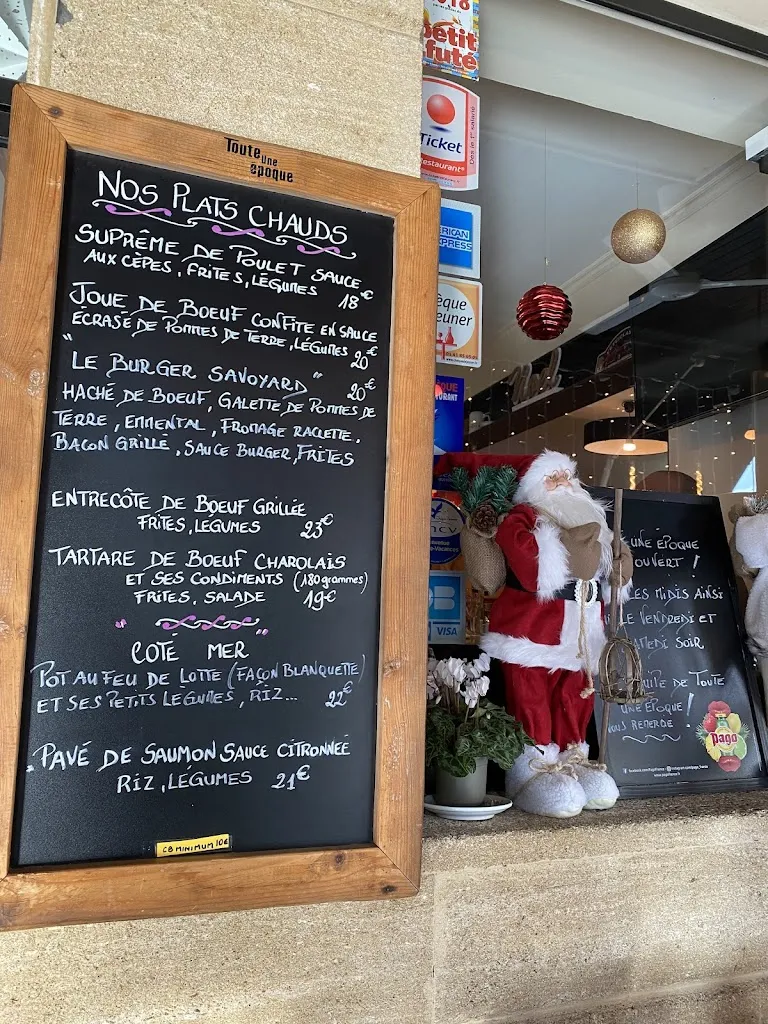 Toute une
époque
NOS PLATS CHAUDS
SUPRÊME DE POULET SAUCE
AUX CÈPES, FRITES, LÉGUMES 18€
JOUE DE BOEUF CONFITE EN SAUCE
ÉCRASÉ DE POMMES DE TERRE, LÉGUMES 20€
"LE BURGER SAVOYARD" 20€
HACHÉ DE BOEUF, GALETTE DE POMMES DE
TERRE, EMMENTAL, FROMAGE RACLETTE.
BACON GRILLÉ, SAUCE BURGER, FRITES
ENTRECÔTE DE BOEUF GRILLÉE
FRITES, LÉGUMES 23€
TARTARE DE BOEUF CHAROLAIS
ET SES CONDIMENTS (180 grammes)
FRITES, SALADE 19€
"CÔTÉ MER"
POT AU FEU DE LOTTE (FAÇON BLANQUETTE)
ET SES PETITS LÉGUMES, RIZ... 22€
PAVÉ DE SAUMON SAUCE CITRONNÉE
RIZ, LÉGUMES 21€
CB MINIMUM 10€
petit
futé
Ticket
Restaurant
Dès le 1er salarié
RICAN
XPRESS
èque
euner
VISA
UNE EPOQUE
OUVERT !
LES MIDIS AINSI
LE VENDREDI ET
SAMEDI SOIR
DE TOUTE
UNE EPOQUE !
VOUS REMERCIE
pago